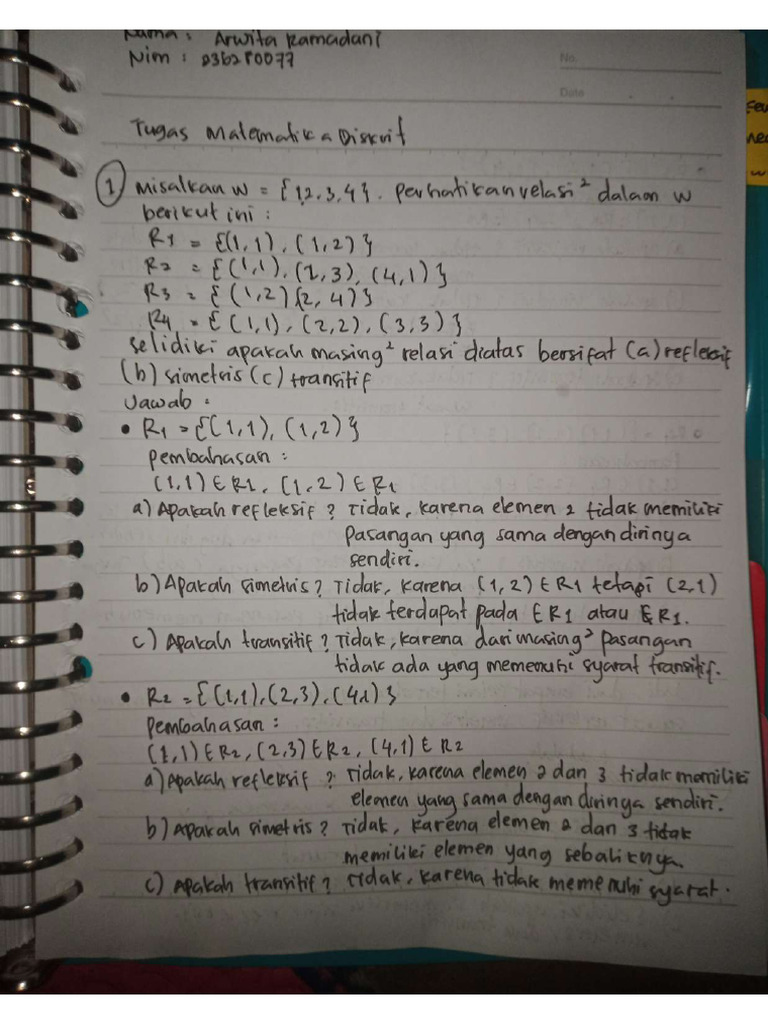 Nama : Arwita Ramadani
Nim : 236280077
No.
Date
Tugas Matematika Diskrit
1 Misalkan W = {1,2,3,4}. Perhatikan relasi² dalam W
berikut ini :
R1 = {(1,1), (1,2)}
R2 = {(1,1), (2,3), (4,1)}
R3 = {(1,2)(2,4)}
R4 = {(1,1), (2,2), (3,3)}
Selidiki apakah masing² relasi diatas bersifat (a) refleksif
(b) simetris (c) transitif
Jawab :
• R1 = {(1,1), (1,2)}
Pembahasan :
(1,1) ∈ R1, (1,2) ∈ R1
a) Apakah refleksif ? Tidak, karena elemen 2 tidak memiliki
pasangan yang sama dengan dirinya
sendiri.
b) Apakah simetris ? Tidak, karena (1,2) ∈ R1 tetapi (2,1)
tidak terdapat pada ∈ R1 atau ∉ R1.
c) Apakah transitif ? Tidak, karena dari masing² pasangan
tidak ada yang memenuhi syarat transitif.
• R2 = {(1,1), (2,3), (4,1)}
Pembahasan :
(1,1) ∈ R2, (2,3) ∈ R2, (4,1) ∈ R2
a) Apakah refleksif ? Tidak, karena elemen 2 dan 3 tidak memiliki
elemen yang sama dengan dirinya sendiri.
b) Apakah simetris ? Tidak, karena elemen 2 dan 3 tidak
memiliki elemen yang sebaliknya.
c) Apakah transitif ? Tidak, karena tidak memenuhi syarat.